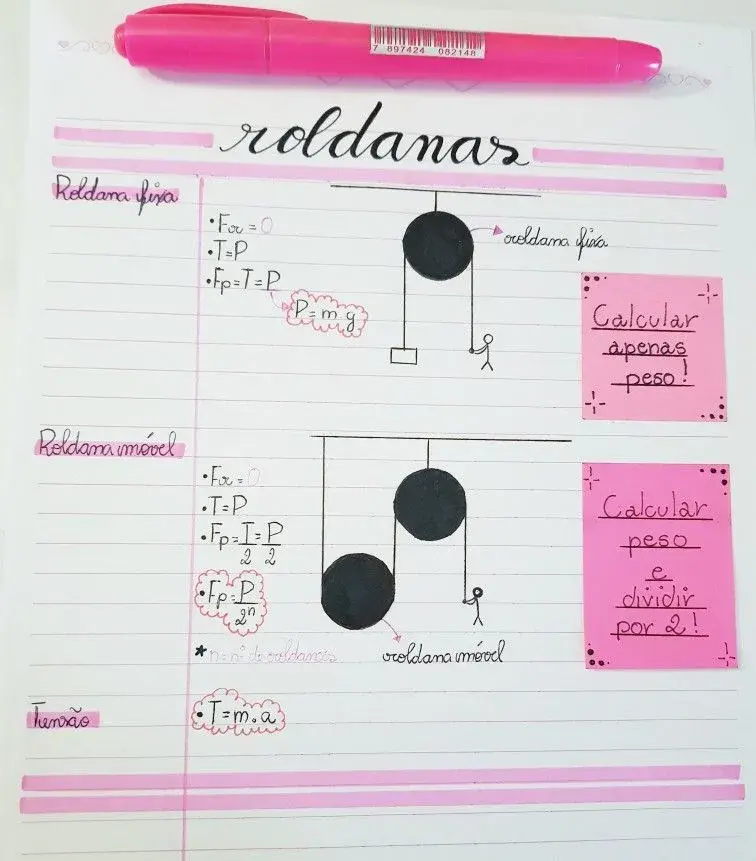 7 897424 082148
roldanas
Roldana fixa
• Fr = 0
• T=P
• Fp=T=P
P=m.g
roldana fixa
Calcular
apenas
peso!
Roldana móvel
• Fr = 0
• T=P
• Fp=T/2=P/2
• Fp=P/2ⁿ
* n=n° de roldanas
roldana móvel
Calcular
peso
e
dividir
por 2!
Tensão
• T=m.a